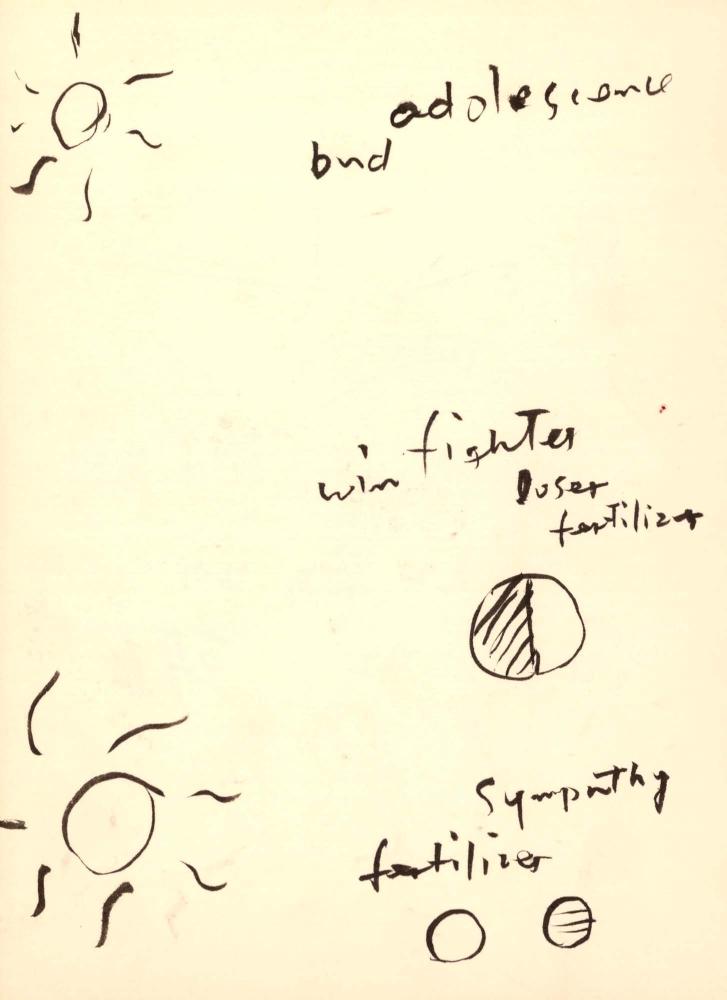 adolescence
bud
fighter
win
loser
fertilizer
sympathy
fertilizer